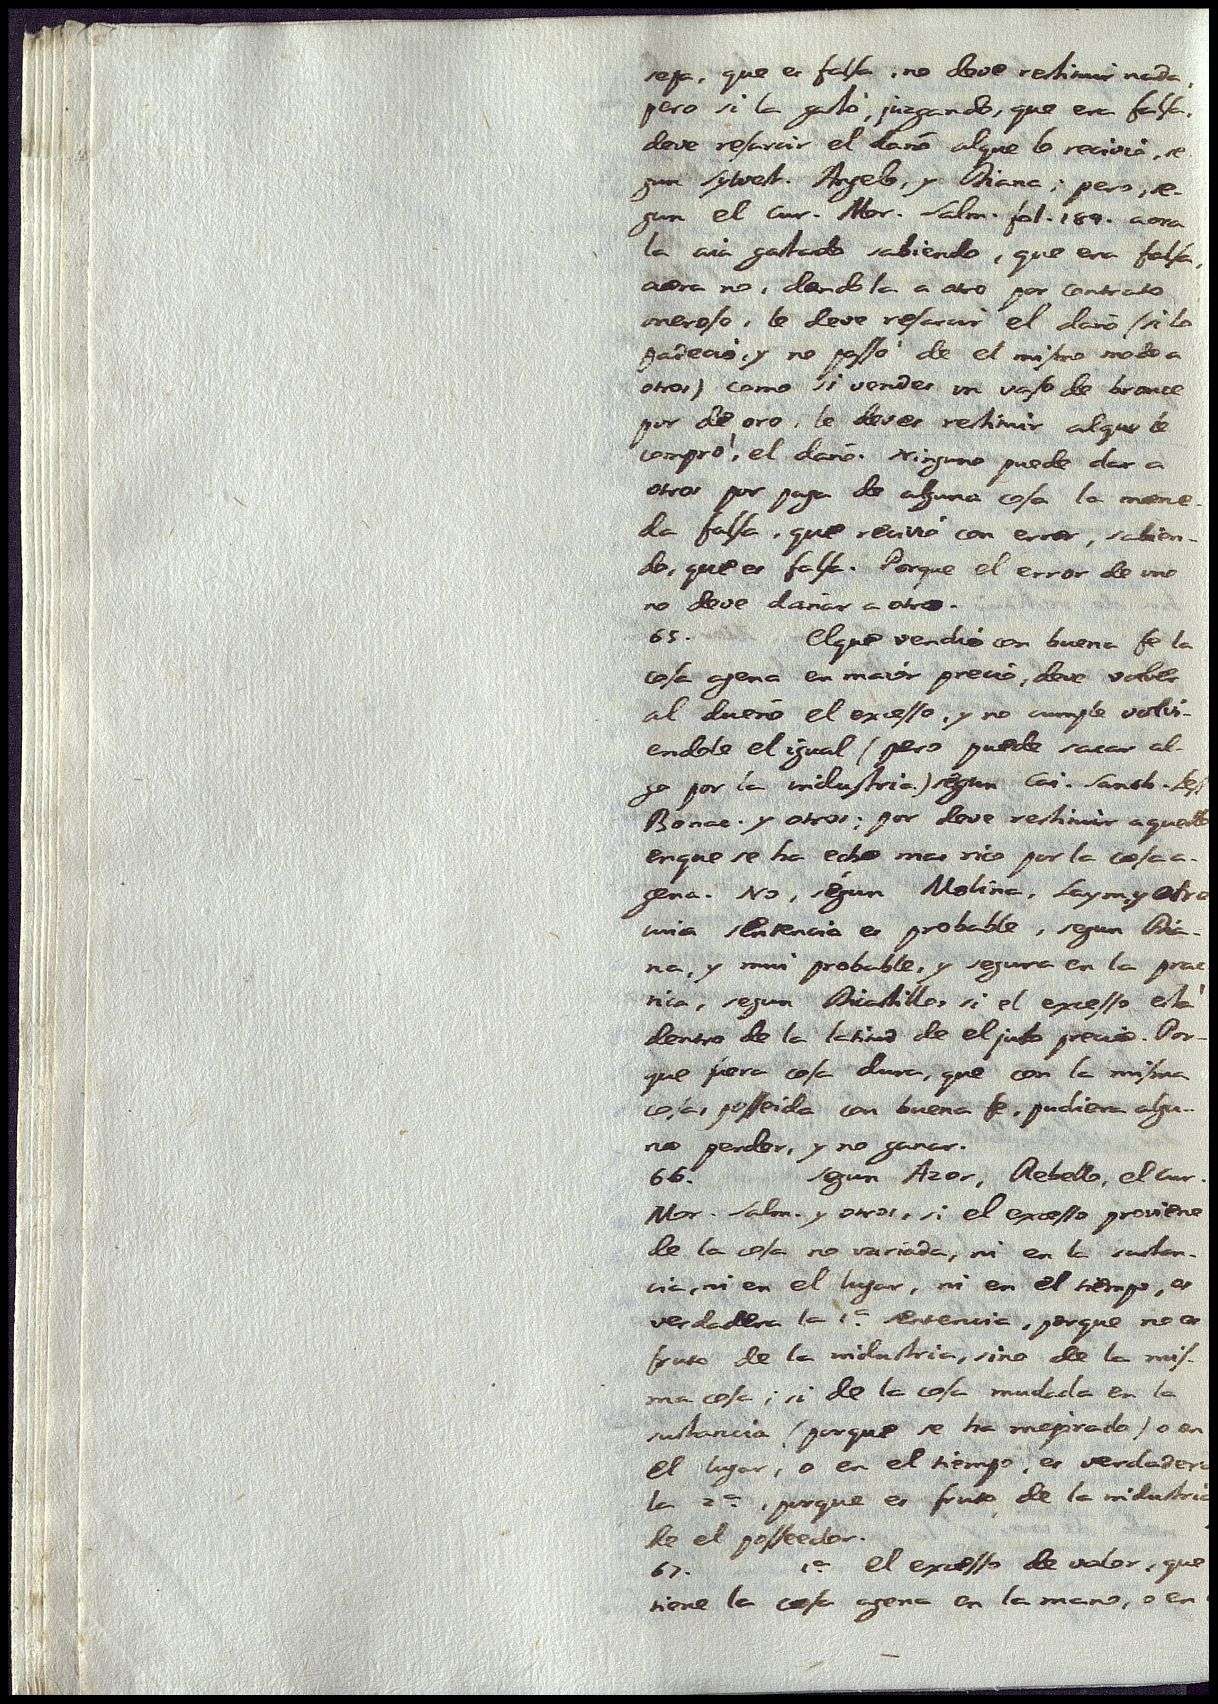 sepa, que es falsa, no deve restituir nada,
pero si la gastó, juzgando, que era falsa,
deve resarcir el daño alque lo recivió, se-
gun Sylvest. Angelo, y Diana; pero, se-
gun el Cur. Mor. Salm. fol. 189. aora
la aia gastado sabiendo, que era falsa,
aora no, dandola a otro por contrato
oneroso, le deve resarcir el daño (si lo
padeció, y no passó de el mismo modo a
otros) como si vendes un vaso de bronce
por de oro, le deves restituir alque le
compró, el daño. Ninguno puede dar a
otros por paga de alguna cosa la mone-
da falsa, que recivió con error, sabien-
do, que es falsa. Porque el error de uno
no deve dañar a otro.
65. Elque vendió con buena fe la
cosa agena en maior precio, deve volver
al dueño el excesso, y no cumple volvi-
endole el igual (pero puede sacar al-
go por la industria) segun Cai. Sanch.
Bonac. y otros; por deve restituir aquello
enque se ha echo mas rico por la cosa a-
gena. No, segun Molina, Laym, y otro
cuia sentencia es probable, segun Dia-
na, y mui probable, y segura en la prac
tica, segun Dicastillo, si el excesso está
dentro de la latitud de el justo precio. Por-
que fuera cosa dura, que con la misma
cosa, posseida con buena fe, pudiera algu-
no perder, y no ganar.
66. Segun Azor, Rebello, el Cur.
Mor. Salm. y otros, si el excesso proviene
de la cosa no variada, ni en la sustan-
cia, ni en el lugar, ni en el tiempo, es
verdadera la 1ª. sentencia, porque no es
fruto de la industria, sino de la mis-
ma cosa; si de la cosa mudada en la
sustancia (porque se ha mejorado) o en
el lugar, o en el tiempo, es verdadera
la 2ª., porque es fruto de la industria
de el posseedor.
67. 1º El excesso de valor, que
tiene la cosa agena en la mano, o en